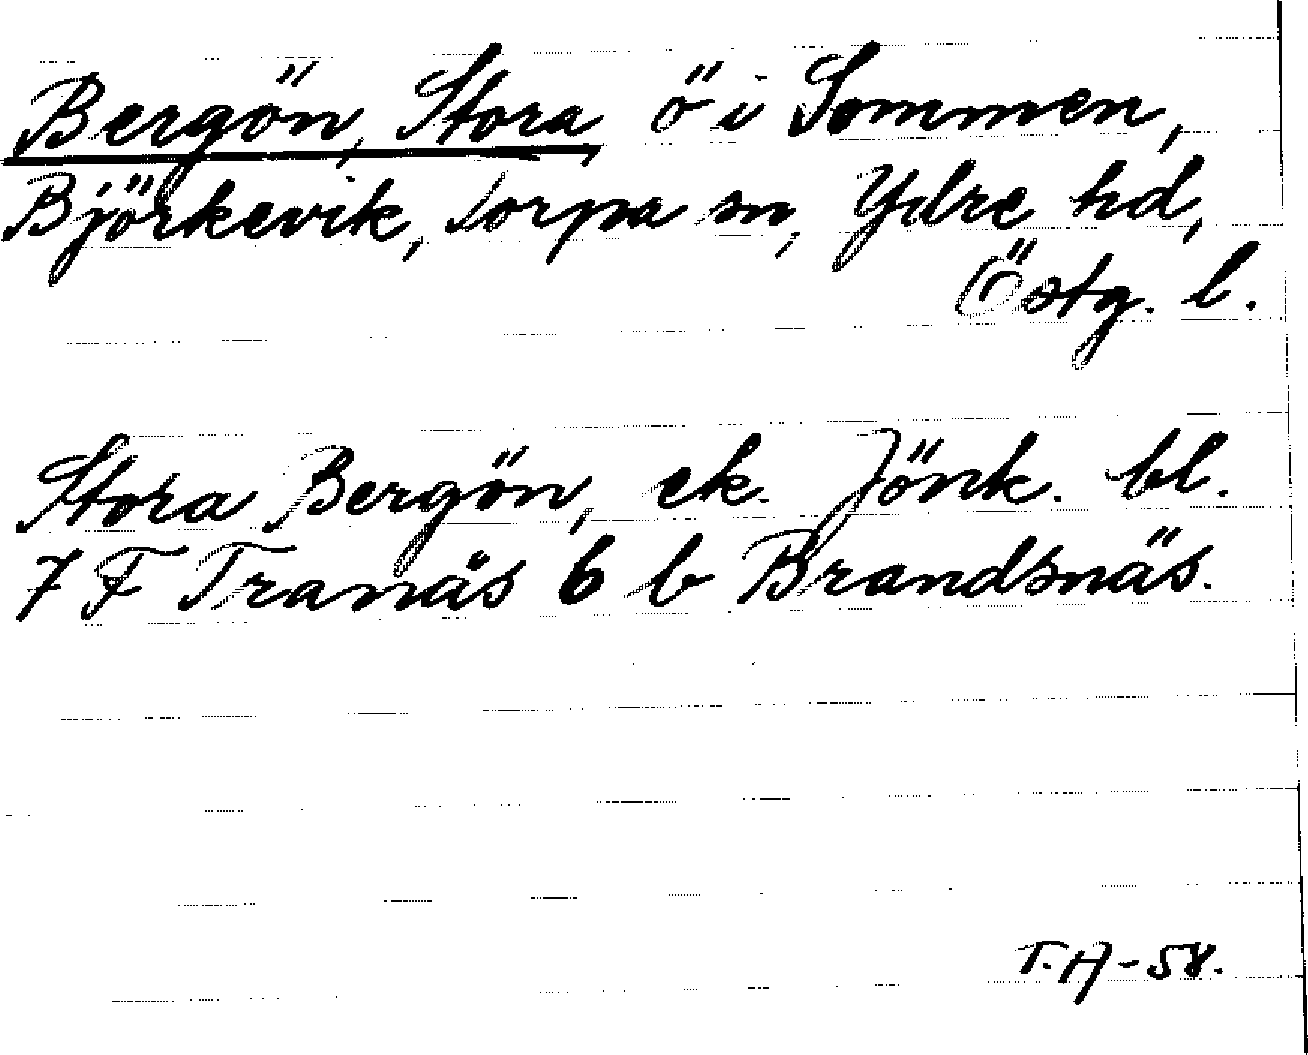 Bergön, Stora, ö i Sommen,
Björkevik, Torpa sn, Ydre hd,
Östg. l.
Stora Bergön, ek. Jönk. bl.
7 F Tranås 6 b Brandsnäs.
T.A-58.